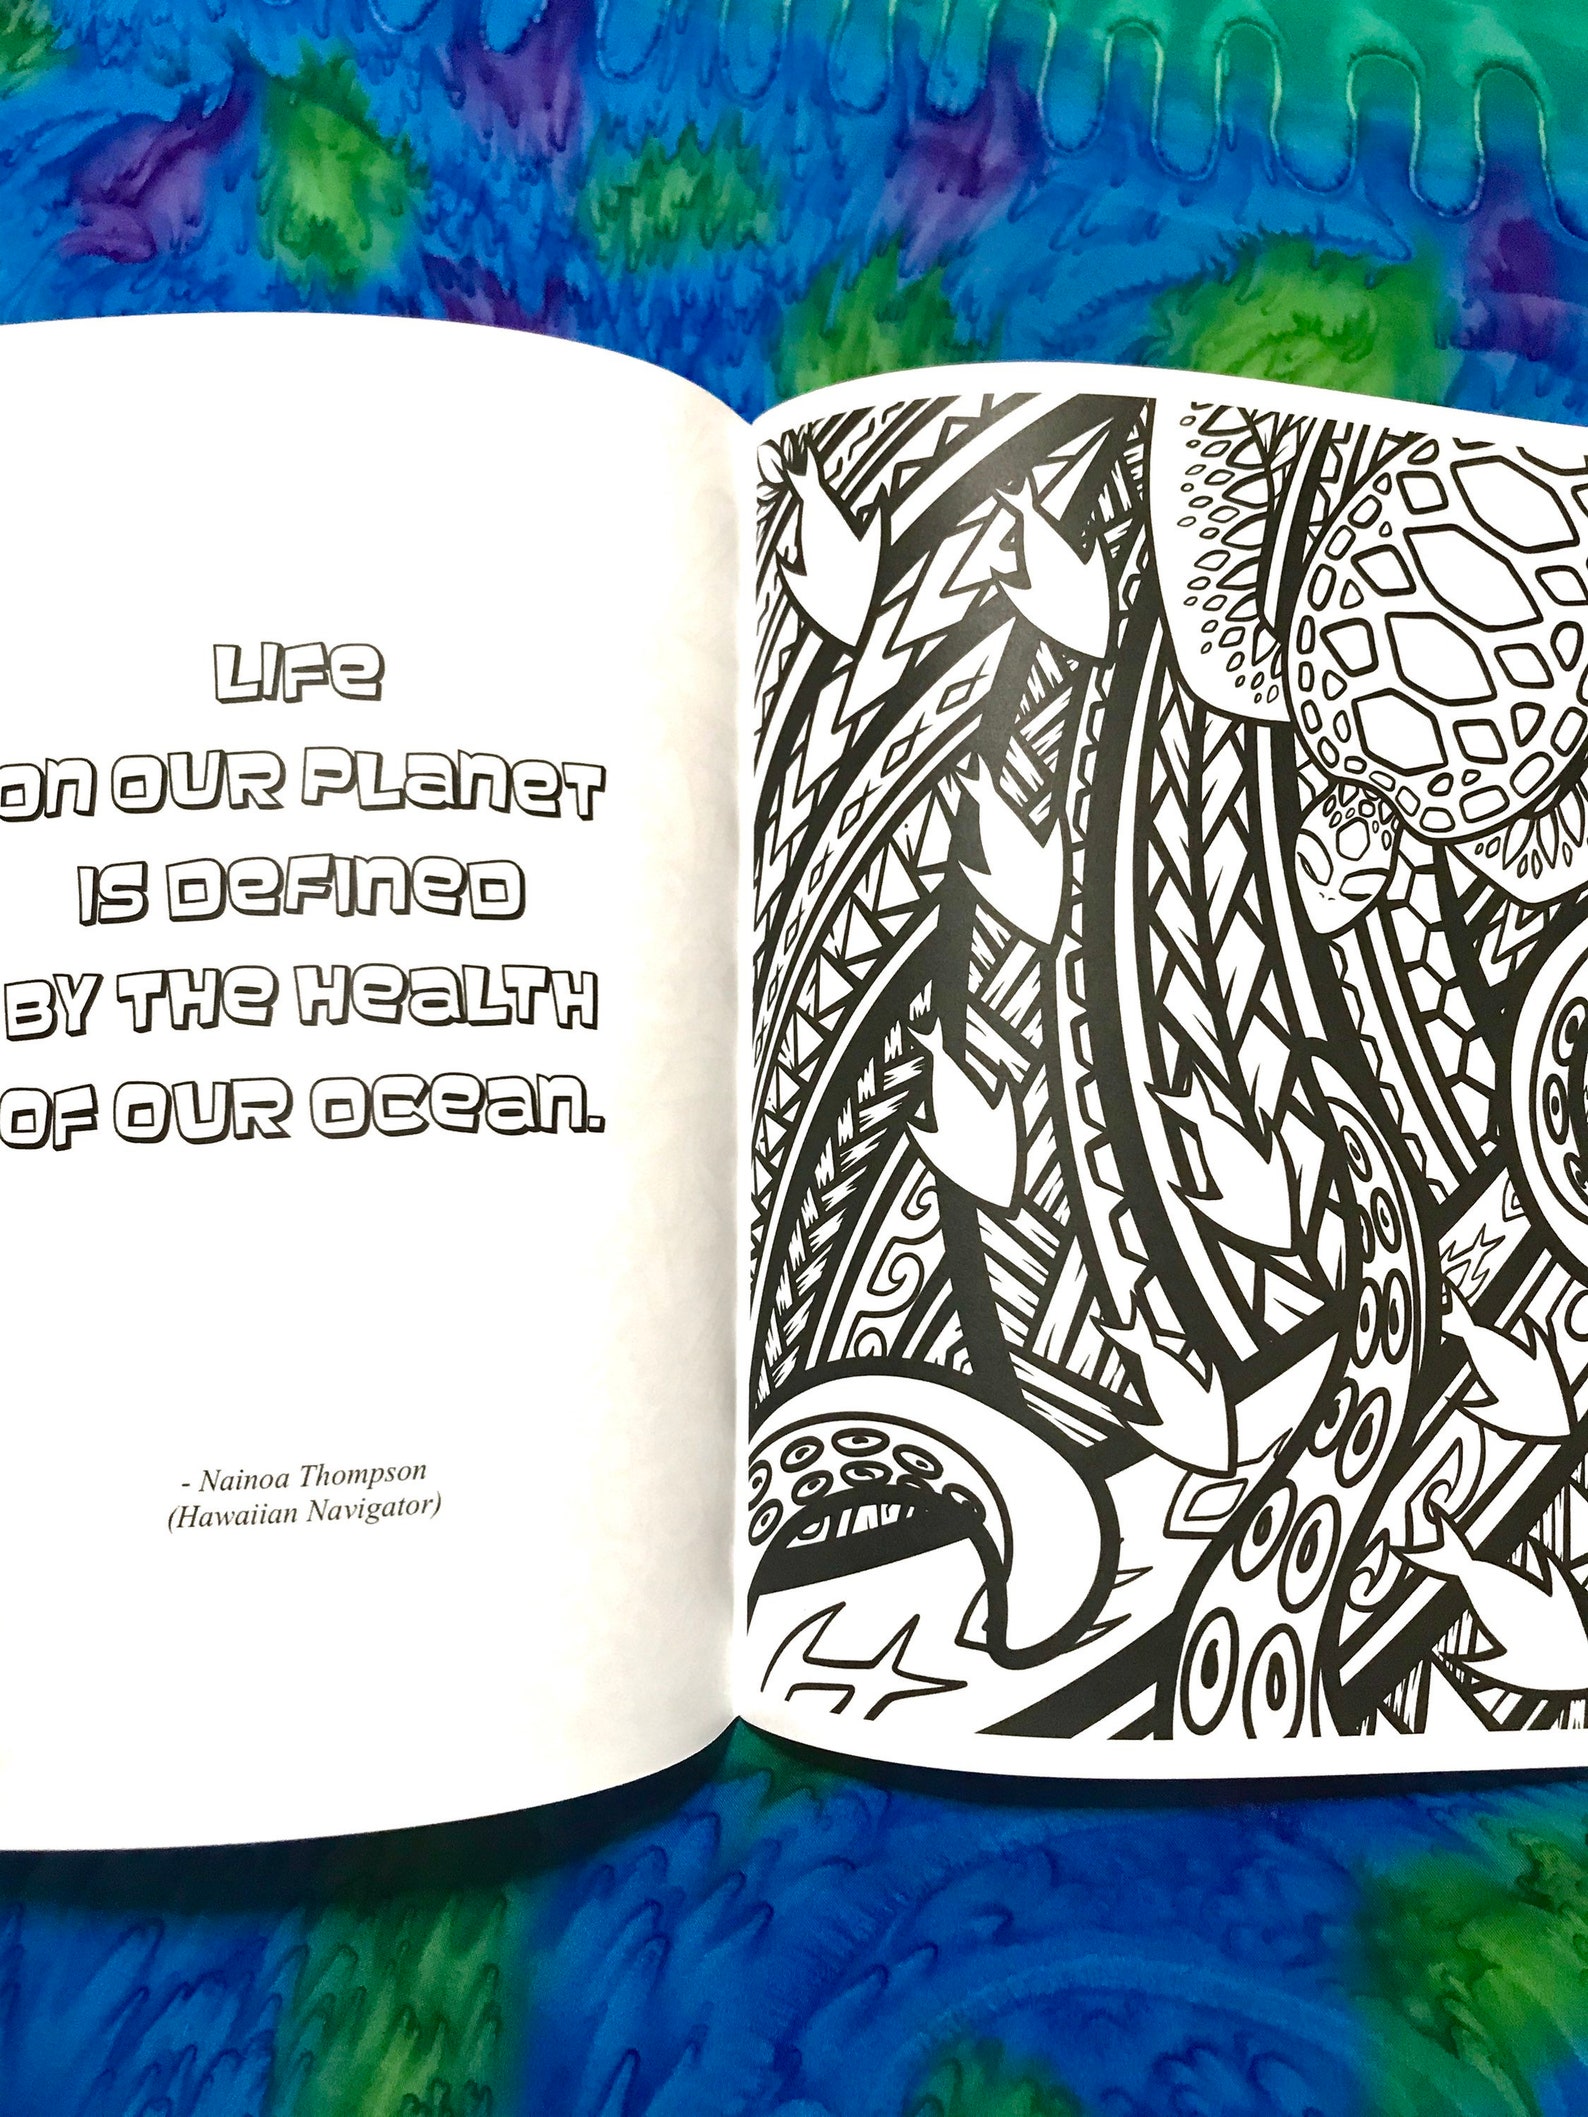 Life
on our planet
is defined
by the health
of our ocean.
- Nainoa Thompson
(Hawaiian Navigator)